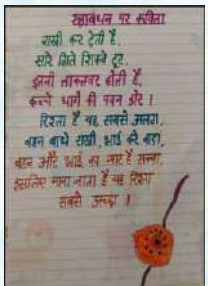 रक्षाबंधन पर कविता
राखी कर देती है,
सारे गिले शिकवे दूर,
इतनी ताकतवर होती है,
कच्चे धागे की पावन डोर।
रिश्ता है यह सबसे अलग,
बहन बांधे राखी, भाई करे वादा,
बहन और भाई का प्यार है सच्चा,
इसलिए माना जाता है यह रिश्ता
सबसे अच्छा।